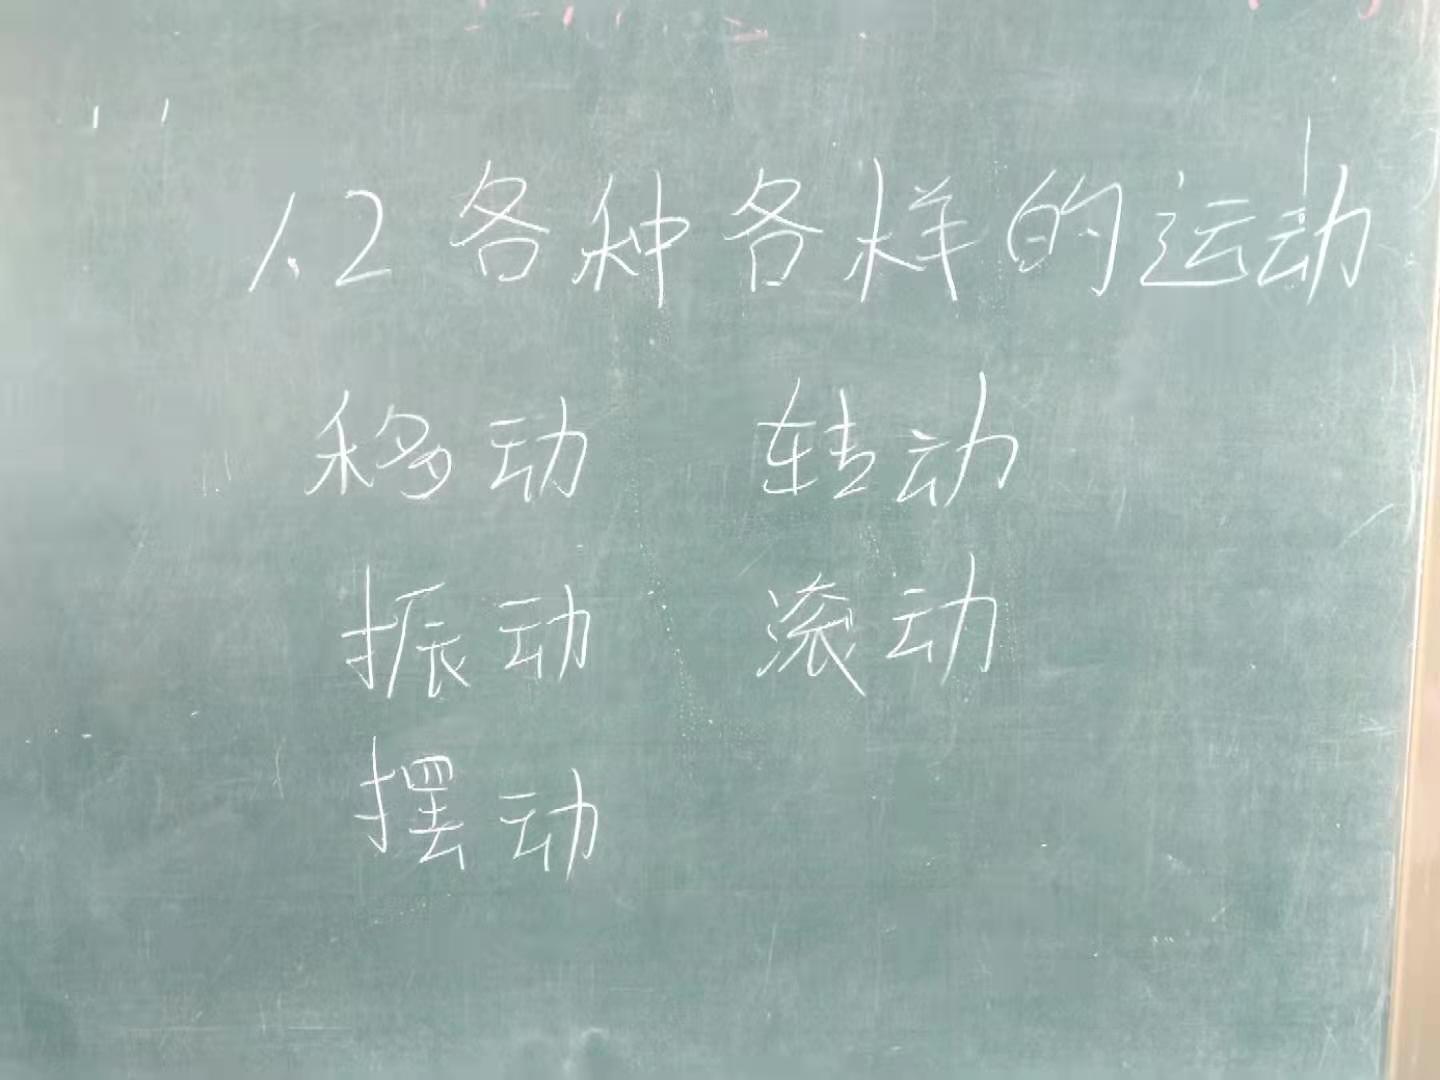 1.2各种各样的运动
移动 转动
振动 滚动
摆动